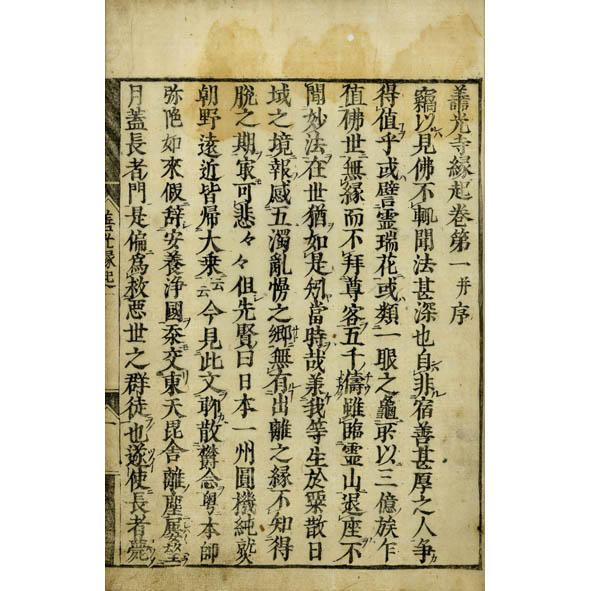 善光寺縁起巻第一并序
竊以見佛不輒聞法甚深也自非宿善甚厚之人争
得值乎或譬霊瑞花或類一眼之龜所以三億族乍
值佛世無縁而不拜尊容五千儔雖臨霊山退座不
聞妙法在世猶如是矧當時哉兼我等生於粟散日
域之境報感五濁亂慠之郷無有出離之縁不知得
脱之期寂可悲々々但先賢曰日本一州圓機純熟
朝野遠近皆帰大乗云云今見此文聊散欝念粤本師
弥陁如来假辞安養浄國忝交東天毘舎離塵屢
月蓋長者門是偏為救悪世之群徒也遂使長者
善光寺縁起